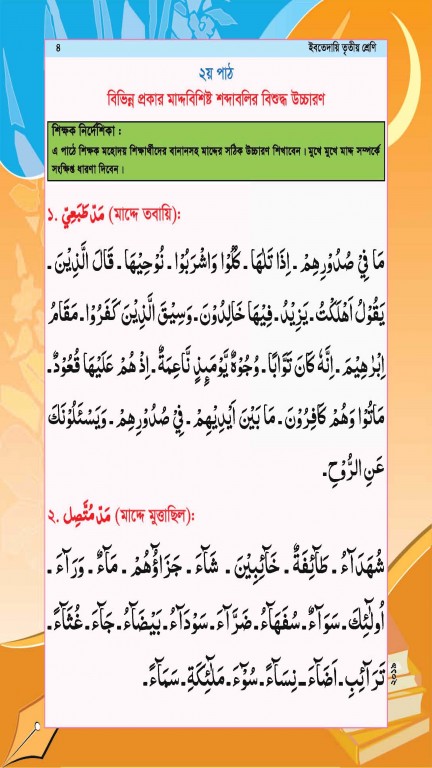 ৪ ইবতেদায়ি তৃতীয় শ্রেণি
২য় পাঠ
বিভিন্ন প্রকার মাদ্দবিশিষ্ট শব্দাবলির বিশুদ্ধ উচ্চারণ
শিক্ষক নির্দেশিকা :
এ পাঠে শিক্ষক মহোদয় শিক্ষার্থীদের বানানসহ মাদ্দের সঠিক উচ্চারণ শিখাবেন। মুখে মুখে মাদ্দ সম্পর্কে
সংক্ষিপ্ত ধারণা দিবেন।
১. مَدّ طَبَعِيْ (মাদ্দে তবায়ি):
مَا فِيْ صُدُوْرِهِمْ ـ اِذَا تَلٰهَا ـ كُلُوْا وَاشْرَبُوْا ـ نُوْحِيْهَا ـ قَالَ الَّذِيْنَ ـ
يَقُوْلُ اَهْلَكْتُ ـ يَزِيْدُ ـ فِيْهَا خَالِدُوْنَ ـ وَسِيْقَ الَّذِيْنَ كَفَرُوْا ـ مَقَامُ
اِبْرٰهِيْمَ ـ اِنَّهٗ كَانَ تَوَّابًا ـ وُجُوْهٌ يَّوْمَئِذٍ نَّاعِمَةٌ ـ اِذْ هُمْ عَلَيْهَا قُعُوْدٌ ـ
مَاتُوْا وَهُمْ كَافِرُوْنَ ـ مَا بَيْنَ اَيْدِيْهِمْ ـ فِيْ صُدُوْرِهِمْ ـ وَيَسْئَلُوْنَكَ
عَنِ الرُّوْحِ ـ
২. مَدّ مُتَّصِل (মাদ্দে মুত্তাছিল):
شُهَدَآءُ ـ طَآئِفَةٌ ـ خَآئِبِيْنَ ـ شَآءَ ـ جَزَاؤُهُمْ ـ مَآءٌ ـ وَرَآءَ ـ
اُولٰٓئِكَ ـ سَوَآءٌ ـ سُفَهَآءُ ـ ضَرَّآءَ ـ سَوْدَآءُ ـ بَيْضَآءُ ـ جَآءَ ـ غُثَآءً ـ
تَرَآئِبِ ـ اَضَآءَ ـ نِسَآءً ـ سُوْٓءَ ـ مَلٰٓئِكَةِ ـ سَمَآءً ـ
২০১৯